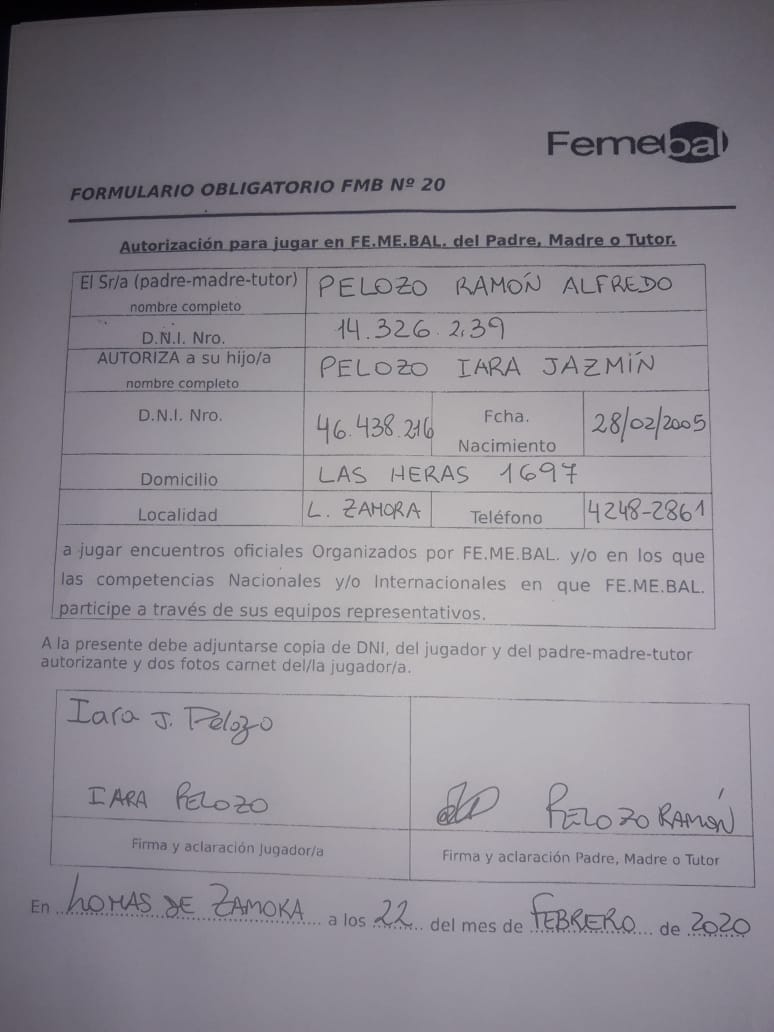 Femebal
FORMULARIO OBLIGATORIO FMB Nº 20
Autorización para jugar en FE.ME.BAL. del Padre, Madre o Tutor.
El Sr/a (padre-madre-tutor) PELOZO RAMÓN ALFREDO
nombre completo
D.N.I. Nro. 14.326.239
AUTORIZA a su hijo/a PELOZO IARA JAZMÍN
nombre completo
D.N.I. Nro. 46.438.216 Fcha. 28/02/2005
Nacimiento
Domicilio LAS HERAS 1697
Localidad L. ZAMORA Teléfono 4248-2861
a jugar encuentros oficiales Organizados por FE.ME.BAL. y/o en los que
las competencias Nacionales y/o Internacionales en que FE.ME.BAL.
participe a través de sus equipos representativos.
A la presente debe adjuntarse copia de DNI, del jugador y del padre-madre-tutor
autorizante y dos fotos carnet del/la jugador/a.
Iara J. Pelozo
IARA PELOZO
PELOZO RAMÓN
Firma y aclaración Jugador/a
Firma y aclaración Padre, Madre o Tutor
En LOMAS DE ZAMORA a los 22 del mes de FEBRERO de 2020